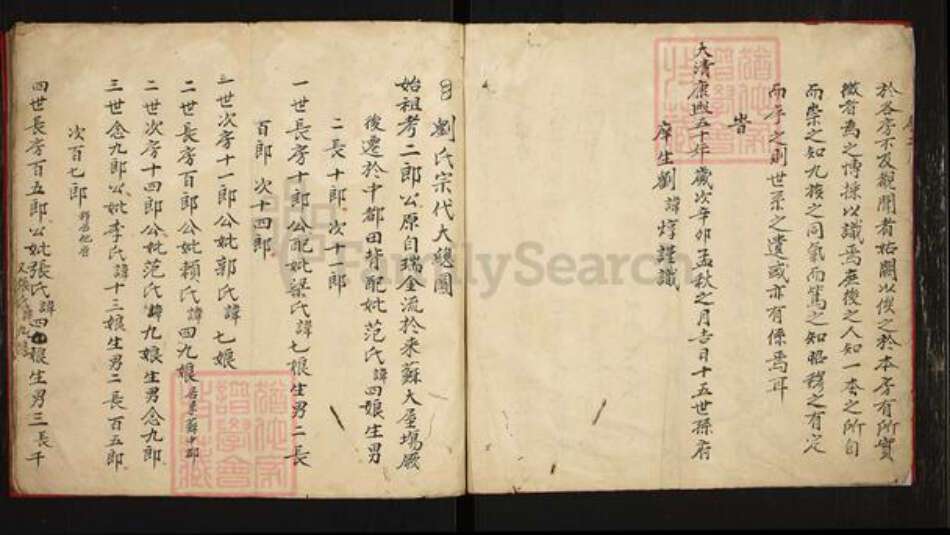 於各房不及親聞者姑闕以俟之於本房有所實
徵者為之博採以識焉庶後之人知一本之所自
而崇之知九族之同氣而篤之知昭穆之有定
而序之則世系之遺或亦有係焉耳
旹
大清康熙五十年歲次辛卯孟秋之月吉日十五世孫府
庠生劉諱焞謹識
劉氏宗代大總圖
始祖考二郎公原自瑞金流於來蘇大屋塲厥
後遷於中都田背配妣范氏諱四娘生男
二長十郎次十二郎
一世長房十郎公配妣梁氏諱七娘生男二長
百郎 次十四郎
世次房十一郎公妣郭氏諱七娘
二世長房百郎公妣賴氏諱四九娘居來蘇中都
二世次房十四郎公妣范氏諱九娘生男念九郎
三世念九郎公妣李氏諱十三娘生男二長百五郎
次百七郎 移居他房
四世長房百五郎公妣張氏諱四娘生男三長千
又張氏諱九娘
FamilySearch